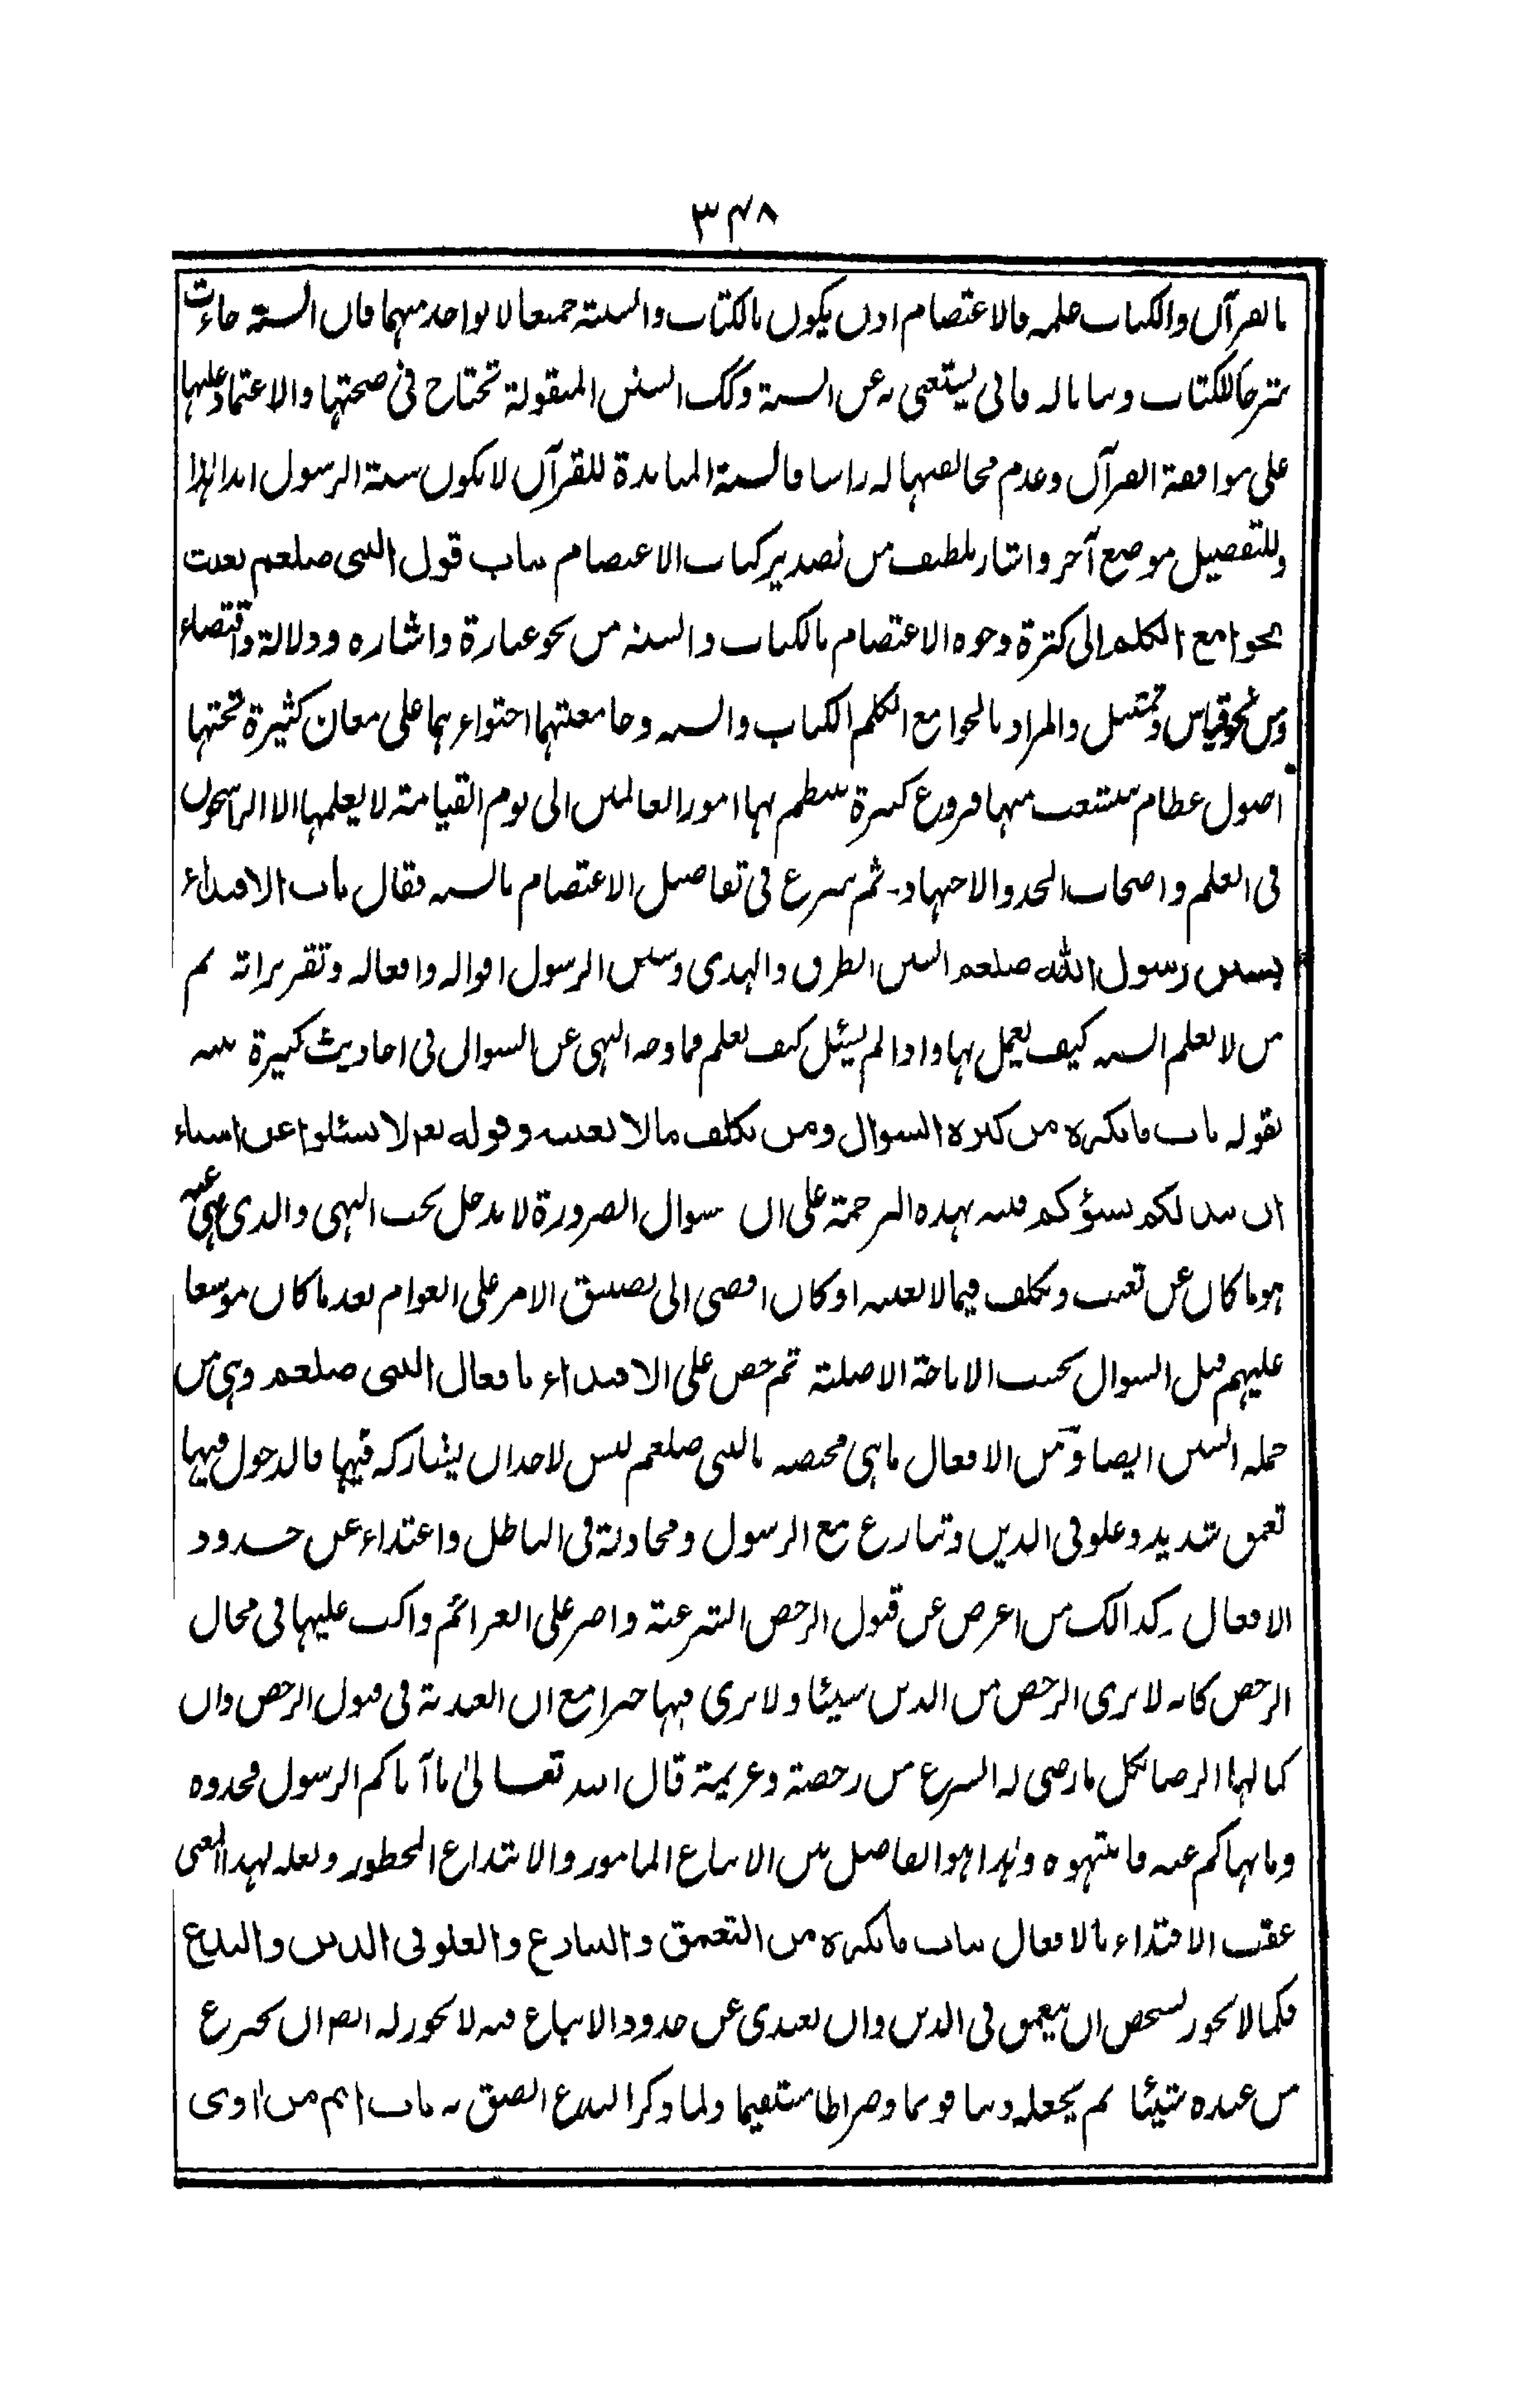 ۳۴۸
بالقرآن والكتاب جلمه فالاعتصام اذن يكون بالكتاب والسنة جميعا لا بواحد منهما فان السنة جاءت
شرحا للكتاب وبيانا له فانى يستغنى به عن السنة وكك السنن المنقولة تحتاج فى صحتها والاعتماد عليها
على موافقة القرآن وعدم مخالفتها له راسا فالسنة المباينة للقرآن لا يكون سنة الرسول ابدا لهذا
وللتفصيل موضع آخر واشار بلطيف من تصدير كتاب الاعتصام بباب قول النبى صلعم بعثت
بجوامع الكلم الى كثرة وجوه الاعتصام بالكتاب والسنة من نحو عبارة واشاره ودلالة واقتضاء
ومن نحو قياس وتمثيل والمراد بالجوامع الكلم الكتاب والسنة وجامعيتهما احتواءهما على معان كثيرة تحتها
اصول عظام يتشعب منها فروع كثيرة ينتظم بها امور العالمين الى يوم القيامة لا يعلمها الا الراسخون
فى العلم واصحاب الجد والاجتهاد۔ ثم شرع فى تفاصيل الاعتصام بالسنة فقال باب الاقتداء
بسنن رسول الله صلعم السنن الطرق والهدى وسنن الرسول اقواله وافعاله وتقريراته ثم
من لا يعلم السنة كيف يعمل بها واذا لم يسئل كيف يعلم فما وجه النهى عن السوال فى احاديث كثيرة نبه
بقوله باب ما يكره من كثرة السوال ومن تكلف ما لا يعنيه وقوله تعم لا تسئلوا عن اشياء
ان تبد لكم تسؤكم فنبه بهذه الترجمة على ان سوال الضرورة لا يدخل تحت النهى والذى نهى عنه
هو ما كان عن تعنت وتكلف فيما لا يعنيه او كان افضى الى تضييق الامر على العوام بعد ما كان موسعا
عليهم قبل السوال بحسب الاباحة الاصلية ثم حض على الاقتداء بافعال النبى صلعم وهى من
جملة السنن ايضا ومن الافعال ما هى مختصة بالنبى صلعم ليس لاحد ان يشاركه فيها فالدخول فيها
تعمق شديد وغلو فى الدين وتنازع مع الرسول ومجادلة فى الباطل واعتداء عن حدود
الافعال۔ كذالك من اعرض عن قبول الرخص الشرعية واصر على العزائم واكب عليها فى محال
الرخص كانه لا يرى الرخص من الدين شيئا ولا يرى فيها خيرا مع ان العبدية فى قبول الرخص وان
كمالها الرضا بكل ما رضى له الشرع من رخصة وعزيمة قال الله تعالىٰ ما آتاكم الرسول فخذوه
وما نهاكم عنه فانتهوه وهذا هو الفاصل بين الاتباع المامور والابتداع المحظور ولعله لهذا المعنى
عقب الاقتداء بالافعال بباب ما يكره من التعمق والتنازع والغلو فى الدين والبدع
فكما لا يجوز لشخص ان يتعمق فى الدين وان يعتدى عن حدود الاتباع فيه لا يجوز له ايضا ان يخترع
من عنده شيئا ثم يجعله دينا قويما وصراطا مستقيما ولما ذكر البدع الصق به باب اثم من اوى